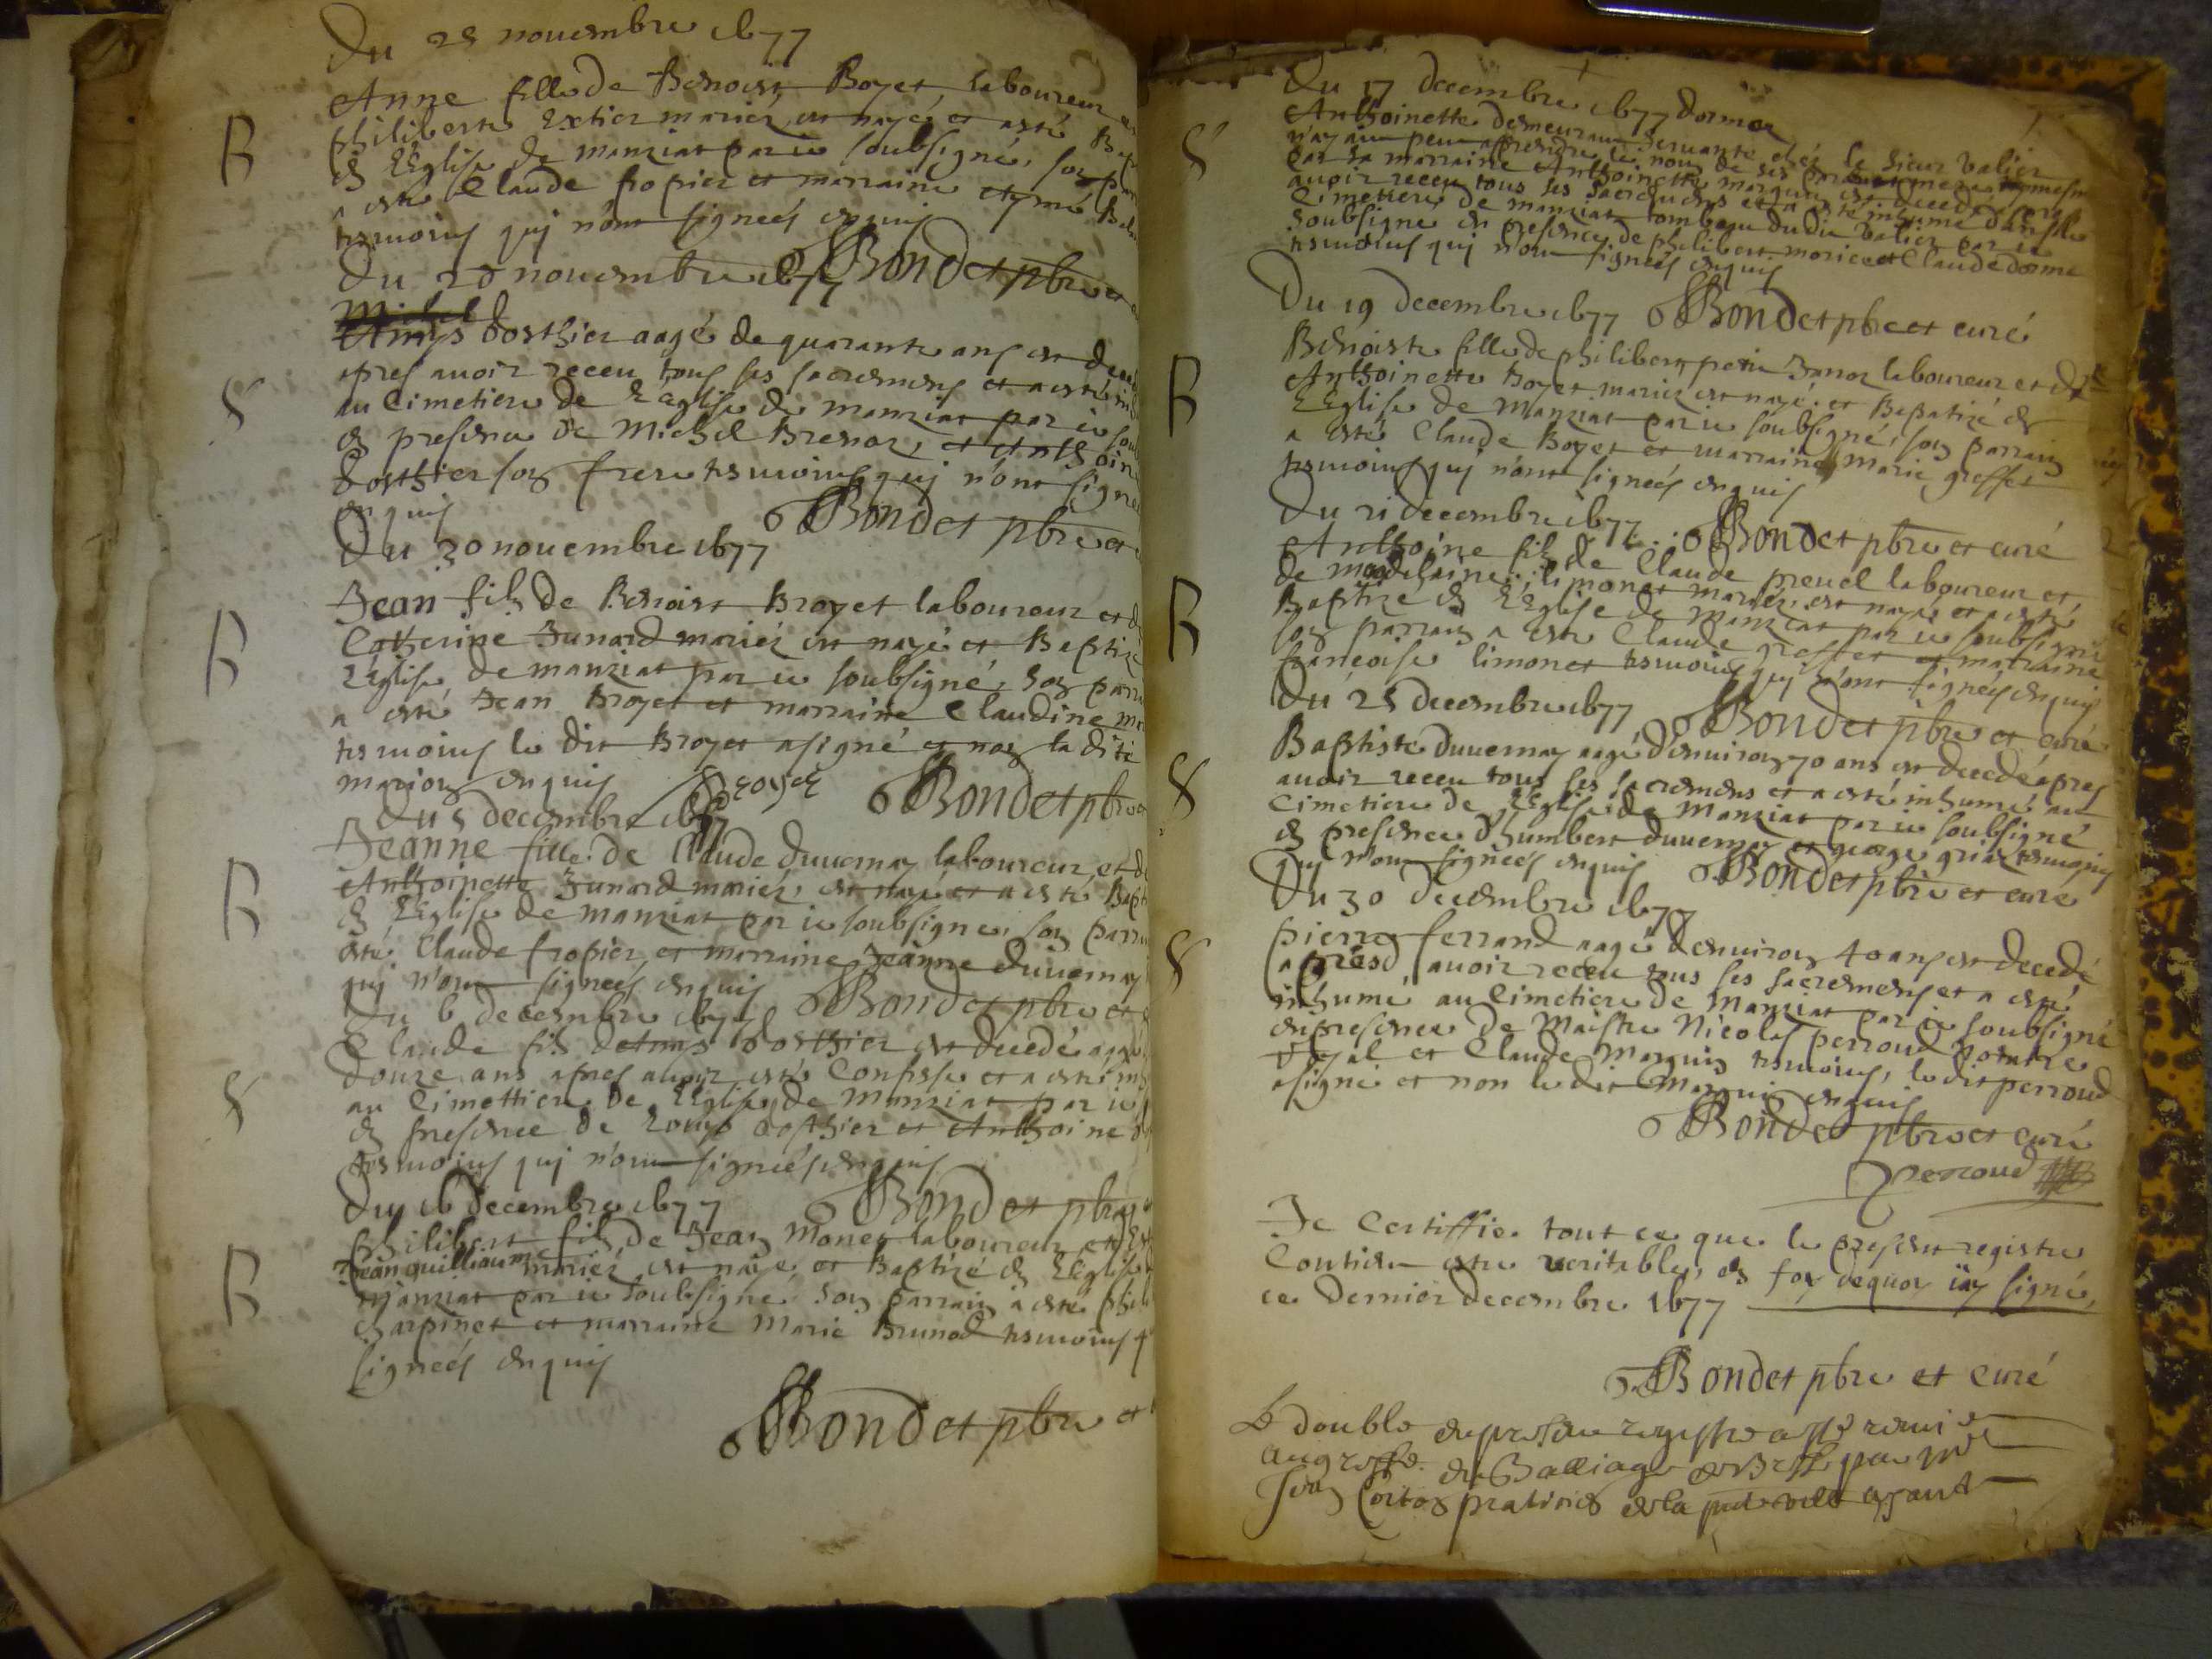 Du 25 nouembre 1677
Anne fille de Benoist Boyet, laboureur
philiberte Extier mariez est nayé et a esté Bap
B
en L'Eglise de manziat par ie soubsigné, son par
a esté Claude fropier et marraine
tesmoins qui n'ont signeés enquis
Bondet pbre et
Du 28 nouembre 1677
Amys dosthier aagé de quarante ans est decedé
apres auoir receu tous les sacremens et a esté in
S
au Cimetiere de L'Eglise de manziat par ie sou
en presence de Michel Brenot, et Anthoine
dosthier son frere tesmoins qui n'ont signe
enquis
Bondet pbre et
Du 30 nouembre 1677
Jean fils de Benoist Broyet laboureur et de
Catherine Junard mariez est nayé et Baptizé
B
L'Eglise de manziat par ie soubsigné, son parra
a esté Jean Broyet et marraine Claudine
tesmoins le dit Broyet a signé et non la dite
marion enquis
Broyet
Bondet pbre
Du 5 decembre 1677
Jeanne fille de Claude duuernay laboureur, et de
Anthoinette Junard mariez est nayé et a esté Bapt
B
en L'Eglise de manziat par ie soubsigné, son parra
esté Claude fropier, et marraine Jeanne duuernay
qui n'ont signeés enquis
Bondet pbre et
Du 6 decembre 1677
Claude fils d'Amys dosthier est decedé aagé
douze ans apres auoir esté Confessé et a esté in
S
au Cimettiere de L'Eglise de Manziat par ie
en presence de Louys dosthier et Anthoine
tesmoins qui n'ont signeés enquis
Bondet pbre
Du 16 decembre 1677
philibert fils de Jean Money laboureur et
Jean quilliaume mariez est nayé et Baptizé en L'Eglise
B
manziat par ie soubsigné son parrain a esté phili
Charpinet et marraine Marie Brunod tesmoins q
signeés enquis
Bondet pbre et
Du 17 decembre 1677
Anthoinette demeurant seruante chez le sieur valier
S
n'ayant peu apprendre le nom de ses
par sa marraine Anthoinette
auoir receu tous ses sacremens et a esté inhumé dans le
Cimetiere de manziat tombeau dudit valier par ie
soubsigné en presence de philibert morice et Claude dorme
tesmoins qui n'ont signeés enquis
Du 19 decembre 1677
Bondet pbre et curé
Benoiste fille de philibert petit Janot laboureur et de
Anthoinette Boyet mariez est nayé et Baptizé en
B
L'Eglise de Manziat par ie soubsigné, son parrain
a esté Claude Boyet et marraine Marie greffet
tesmoins qui n'ont signeés enquis
Du 21 decembre 1677
Bondet pbre et curé
Anthoine fils de Claude preuel laboureur et
de magdelaine limonet mariez, est nayé et a esté
B
Baptizé en L'Eglise de Manziat par ie soubsigné
son parrain a esté Claude greffet et marraine
francoise limonet tesmoins qui n'ont signeés enquis
Du 25 decembre 1677
Bondet pbre et curé
Baptiste duuernay aagé d'enuiron 70 ans est decedé apres
S
auoir receu tous les sacremens et a esté inhumé au
Cimetiere de L'Eglise de Manziat par ie soubsigné
en presence d'humbert duuernay et george tesmoins
qui n'ont signeés enquis
Bondet pbre et curé
Du 30 decembre 1677
pierre ferrand aagé d'enuiron 40 ans est decedé
S
apres auoir receu tous les sacremens et a esté
inhumé au Cimetiere de Manziat par ie soubsigné
en presence de Maistre Nicolas perroud Notaire
royal et Claude Marquis tesmoins, le dit perroud
a signé et non le dit Marquis enquis
Bondet pbre et curé
perroud
Je Certiffie tout ce que le present registre
Contient estre veritable, en foy dequoy i'ay signé,
ce dernier decembre 1677
Bondet pbre et Curé
Le double du present registre a esté remis
au greffe du Balliage par
Jean praticien de la